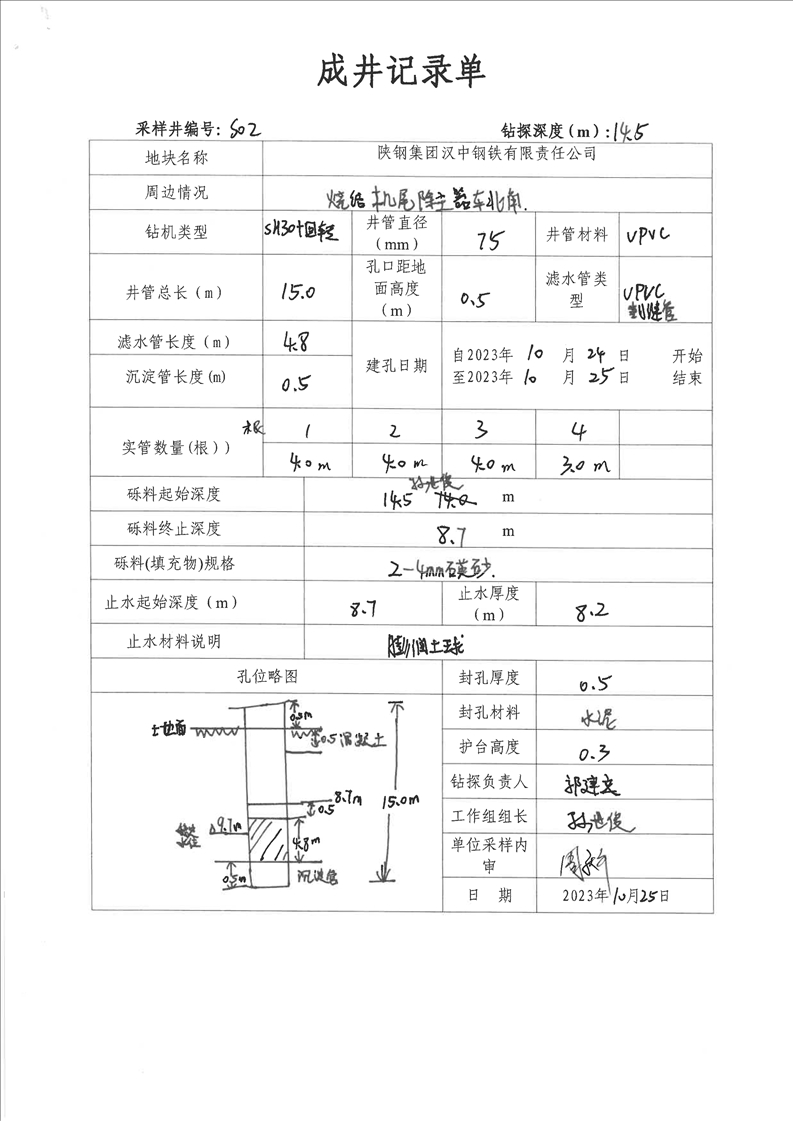 成井记录单
采样井编号: S02 钻探深度(m):14.5
地块名称 陕钢集团汉中钢铁有限责任公司
周边情况 烧结机尾除尘器东北角.
钻机类型 SH30十回转 井管直径(mm) 75 井管材料 UPVC
井管总长(m) 15.0 孔口距地面高度(m) 0.5 滤水管类型 UPVC 割缝管
滤水管长度(m) 4.8
建孔日期 自2023年 10 月 24 日 开始
至2023年 10 月 25 日 结束
沉淀管长度(m) 0.5
实管数量(根)) 根 1 2 3 4
4.0m 4.0m 4.0m 3.0m
孙世俊
砾料起始深度 14.5 14.0 m
砾料终止深度 8.7 m
砾料(填充物)规格 2-4mm石英砂.
止水起始深度(m) 8.7 止水厚度(m) 8.2
止水材料说明 膨润土球
孔位略图
封孔厚度 0.5
封孔材料 水泥
护台高度 0.3
钻探负责人
工作组组长 孙世俊
单位采样内审
日 期 2023年10月25日
0.5m
土地面
0.5混凝土
8.7m
0.5
15.0m
9.7m
4.8m
0.5m
沉淀管